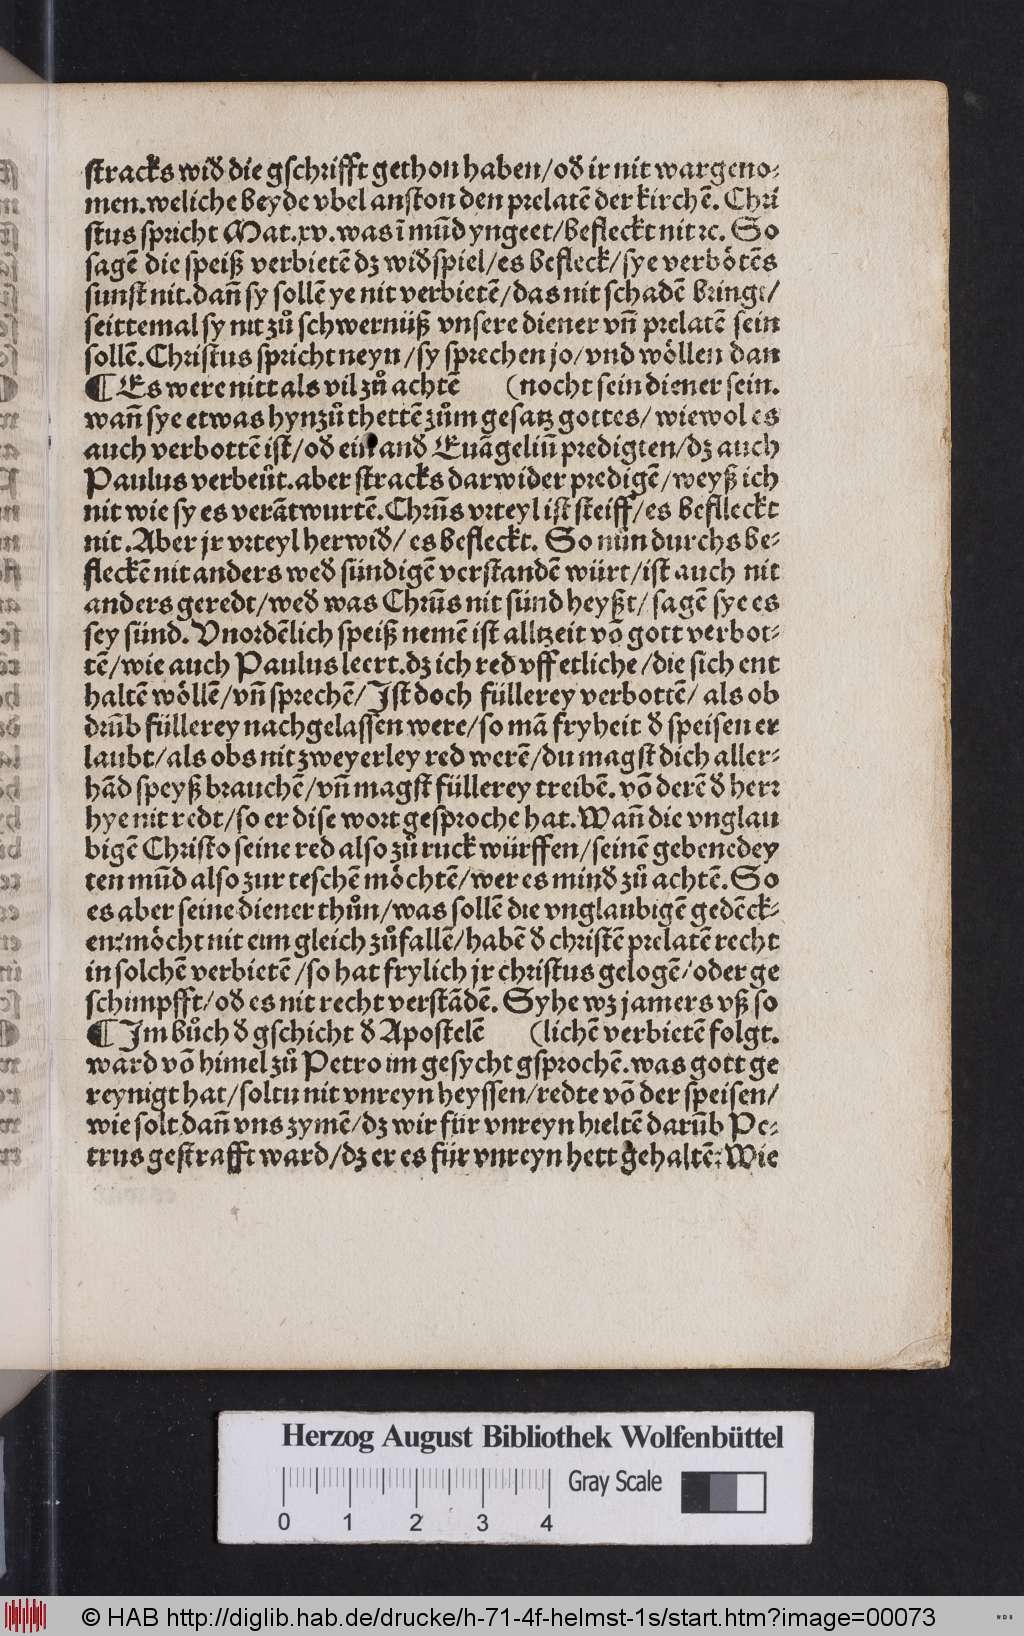 stracks wiđ die gschrifft gethon haben/ođ ir nit wargeno⸗
men.weliche beyde vbel anston den prelatē der kirchē. Chri
stus spricht Mat.xv.was ī mūd yngeet/befleckt nit ꝛc. So
sagē die speiß verbietē dz widspiel/es befleck/sye verbötēs
sunst nit.dan̄ sy sollē ye nit verbietē/das nit schadē bringt/
seittemal sy nit zů schwernüß vnsere diener vn̄ prelatē sein
sollē.Christus spricht neyn/sy sprechen jo/vnd wöllen dan
¶ Es were nitt als vil zů achtē (nocht sein diener sein.
wan̄ sye etwas hynzů thettē zům gesatz gottes/ wiewol es
auch verbottē ist/ođ ein anđ Euāgeliū predigten/dz auch
Paulus verbeüt.aber stracks darwider predigē/weyß ich
nit wie sy es verātwurtē.Chrūs vrteyl ist steiff/es befleckt
nit.Aber jr vrteyl herwiđ/ es befleckt. So nün durchs be⸗
fleckē nit anders weđ sündigē verstandē würt/ist auch nit
anders geredt/weđ was Chrūs nit sünd heyßt/ sagē sye es
sey sünd. Vnordēlich speiß nemē ist alltzeit vō gott verbot⸗
tē/wie auch Paulus leert.dz ich red vff etliche/die sich ent
haltē wöllē/vn̄ sprechē/Ist doch füllerey verbottē/ als ob
drūb füllerey nachgelassen were/so mā fryheit đ speisen er
laubt/als obs nit zweyerley red werē/du magst dich aller⸗
hād speyß brauchē/vn̄ magst füllerey treibē. vō derē đ herr
hye nit redt/so er dise wort gesproche hat.Wan̄ die vnglau
bigē Christo seine red also zů ruck würffen/seinē gebenedey
ten mūd also zur teschē möchtē/wer es minđ zů achtē.So
es aber seine diener thůn/was sollē die vnglaubigē gedēck⸗
en:möcht nit eim gleich zůfallē/habē đ christē prelatē recht
in solchē verbietē/so hat frylich jr christus gelogē/oder ge
schimpfft/ođ es nit recht verstādē. Syhe wz jamers vß so
¶ Im bůch đ gschicht đ Apostelē (lichē verbietē folgt.
ward vō himel zů Petro im gesycht gsprochē.was gott ge
reynigt hat/soltu nit vnreyn heyssen/redte vō der speisen/
wie solt dan̄ vns zymē/dz wir für vnreyn hieltē darūb Pe⸗
trus gestrafft ward/dz er es für vnreyn hett gehaltē:Wie
Herzog August Bibliothek Wolfenbüttel
Gray Scale
0 1 2 3 4
© HAB http://diglib.hab.de/drucke/h-71-4f-helmst-1s/start.htm?image=00073